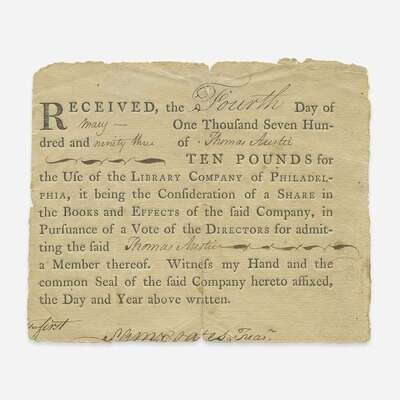 RECEIVED, the Fourth Day of
May One Thousand Seven Hun-
dred and ninety three of Thomas Austin
TEN POUNDS for
the Uſe of the LIBRARY COMPANY of PHILADEL-
PHIA, it being the Conſideration of a SHARE in
the BOOKS and EFFECTS of the ſaid Company, in
Purſuance of a Vote of the DIRECTORS for admit-
ting the ſaid Thomas Austin
a Member thereof. Witneſs my Hand and the
common Seal of the ſaid Company hereto affixed,
the Day and Year above written.
first
Sam Coates Treasr.